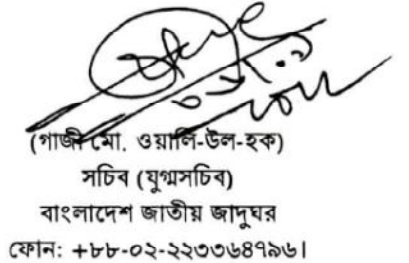 (গাজী মো. ওয়ালি-উল-হক)
সচিব (যুগ্মসচিব)
বাংলাদেশ জাতীয় জাদুঘর
ফোন: +৮৮-০২-২২৩৩৬৪৭৯৬।